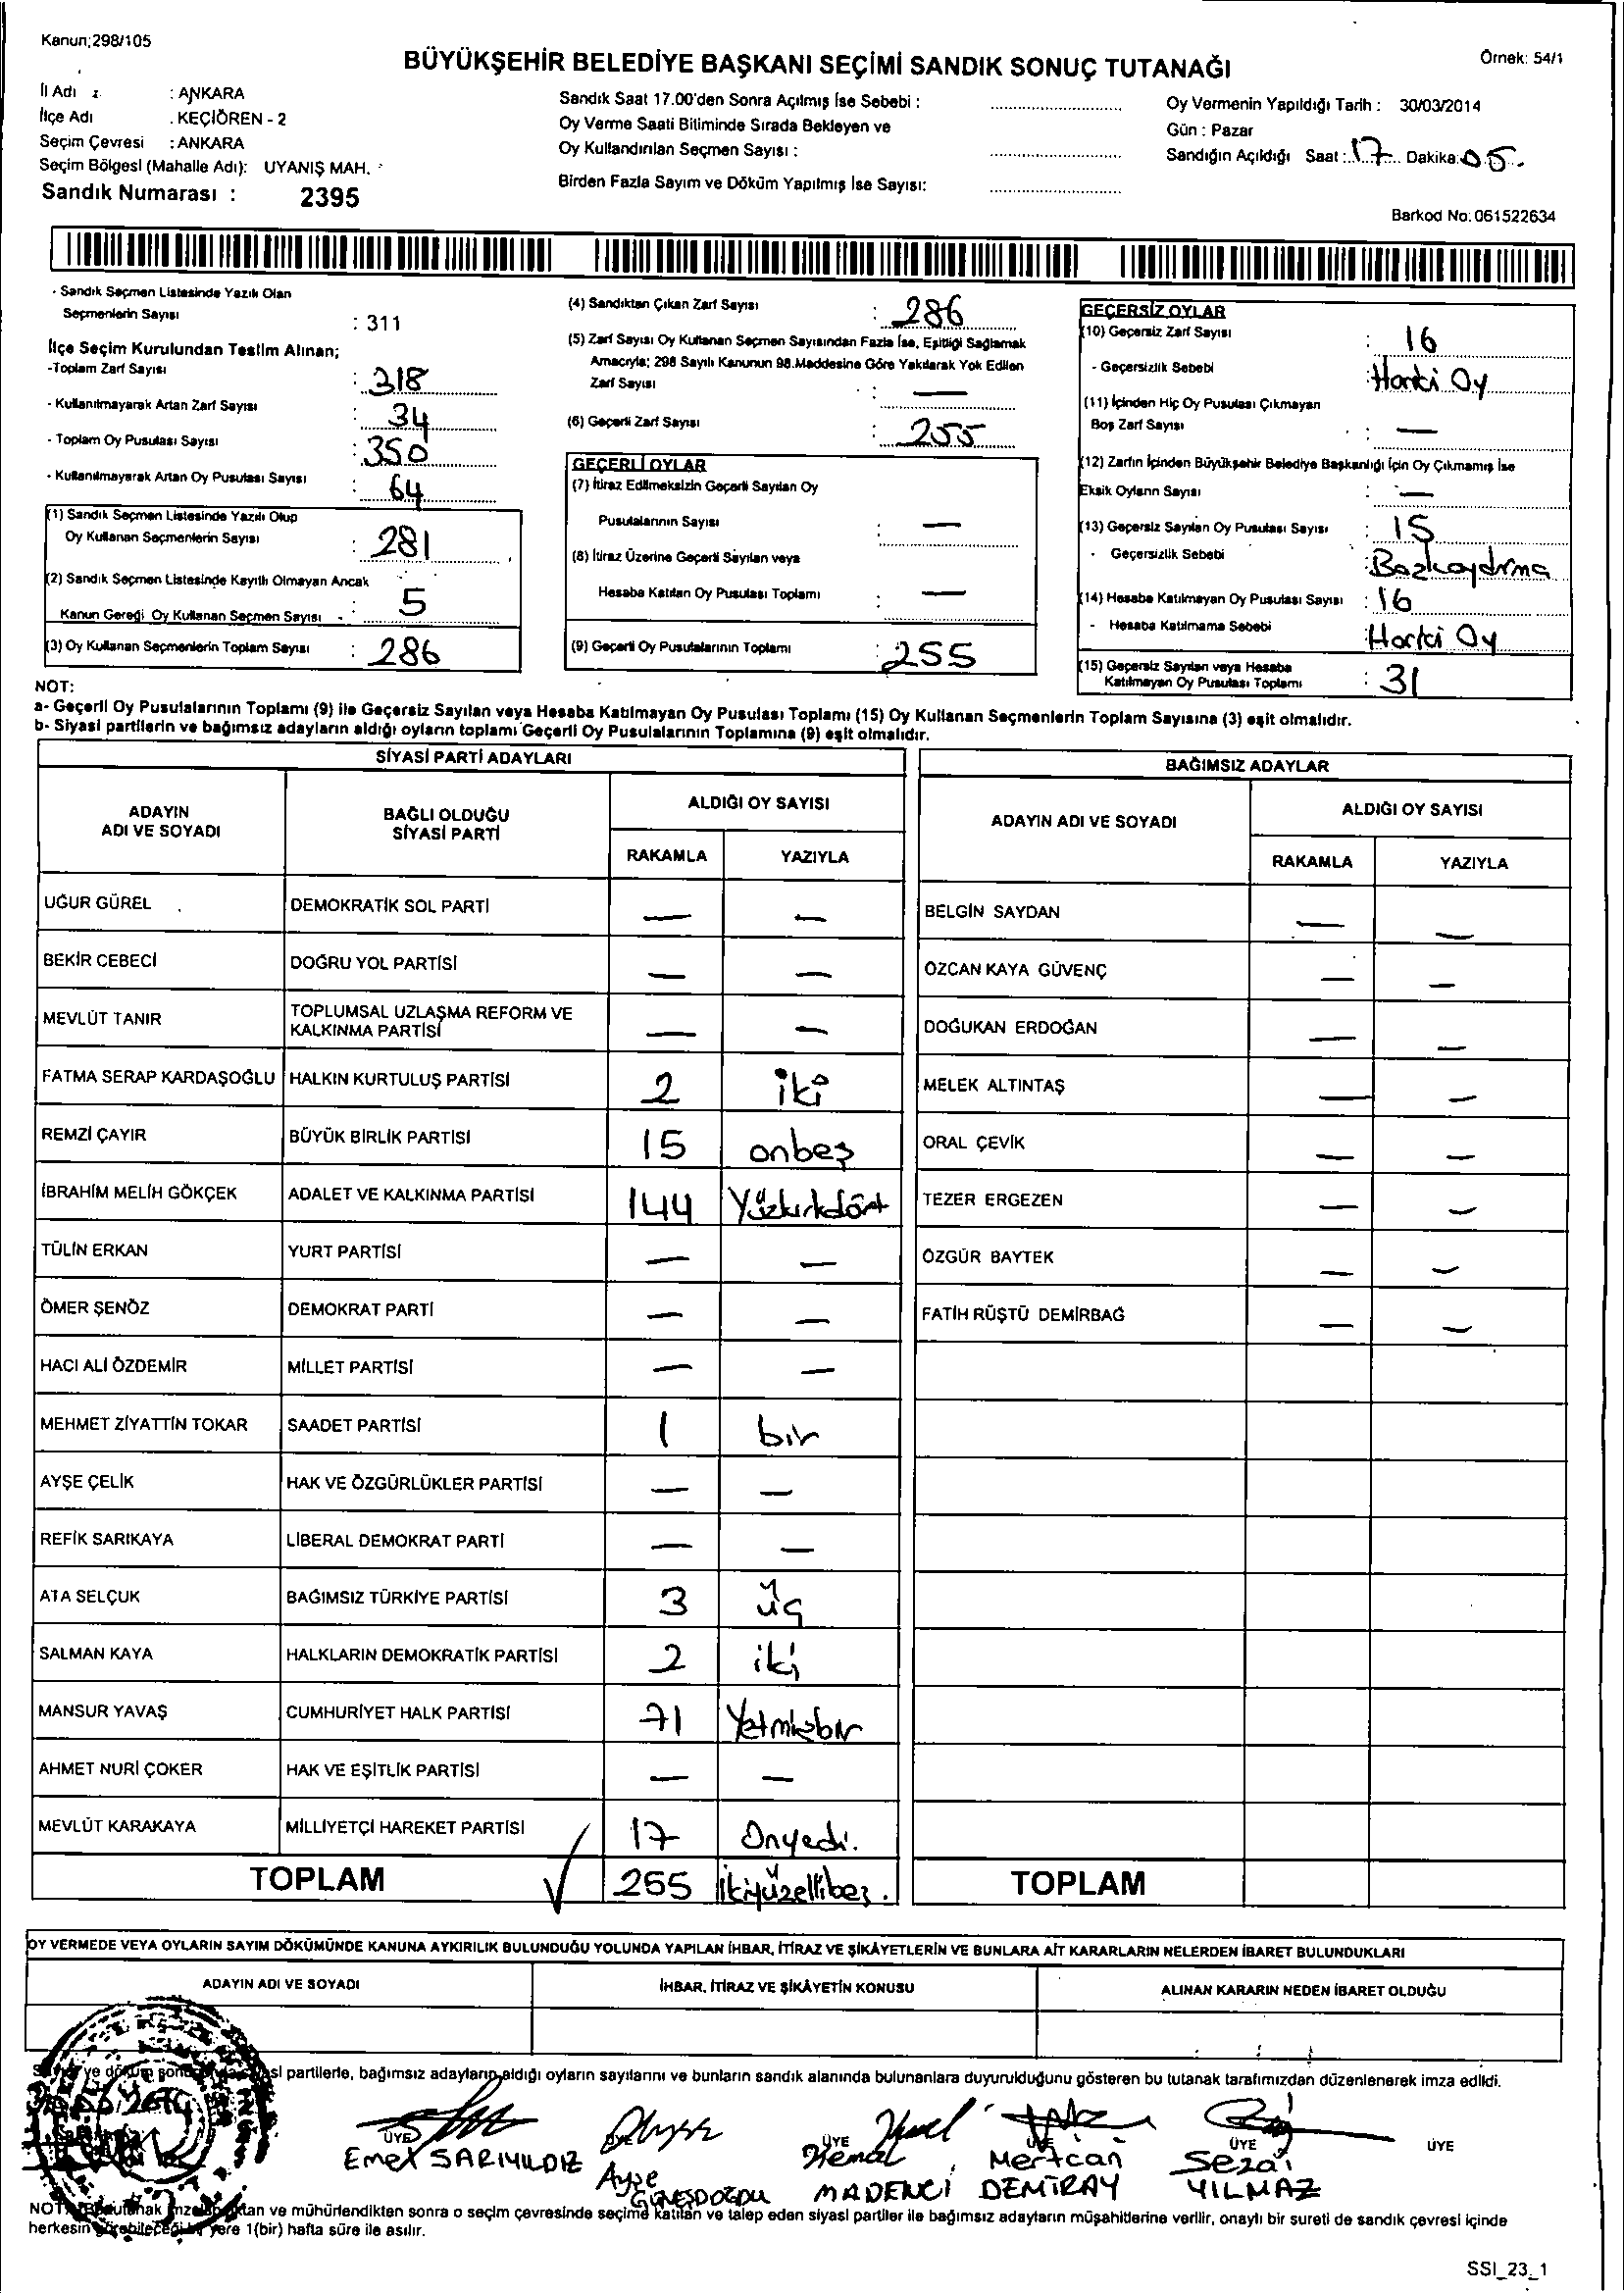 Kanun;298/105
BÜYÜKŞEHİR BELEDİYE BAŞKANI SEÇİMİ SANDIK SONUÇ TUTANAĞI
Örnek: 54/1
İl Adı : ANKARA
İlçe Adı : KEÇİÖREN - 2
Seçim Çevresi : ANKARA
Seçim Bölgesi (Mahalle Adı): UYANIŞ MAH.
Sandık Numarası : 2395
Sandık Saat 17.00'den Sonra Açılmış İse Sebebi :
Oy Verme Saati Bitiminde Sırada Bekleyen ve
Oy Kullandırılan Seçmen Sayısı :
Birden Fazla Sayım ve Döküm Yapılmış İse Sayısı:
Oy Vermenin Yapıldığı Tarih : 30/03/2014
Gün : Pazar
Sandığın Açıldığı Saat : 17 Dakika: 05.
Barkod No: 061522634
- Sandık Seçmen Listesinde Yazılı Olan
Seçmenlerin Sayısı : 311
İlçe Seçim Kurulundan Teslim Alınan;
-Toplam Zarf Sayısı : 318
- Kullanılmayarak Artan Zarf Sayısı : 34
- Toplam Oy Pusulası Sayısı : 350
- Kullanılmayarak Artan Oy Pusulası Sayısı : 64
(1) Sandık Seçmen Listesinde Yazılı Olup
Oy Kullanan Seçmenlerin Sayısı : 281
(2) Sandık Seçmen Listesinde Kayıtlı Olmayan Ancak
Kanun Gereği Oy Kullanan Seçmen Sayısı : 5
(3) Oy Kullanan Seçmenlerin Toplam Sayısı : 286
(4) Sandıktan Çıkan Zarf Sayısı : 286
(5) Zarf Sayısı Oy Kullanan Seçmen Sayısından Fazla İse, Eşitliği Sağlamak
Amacıyla; 298 Sayılı Kanunun 98.Maddesine Göre Yakılarak Yok Edilen
Zarf Sayısı : —
(6) Geçerli Zarf Sayısı : 255
GEÇERLİ OYLAR
(7) İtiraz Edilmeksizin Geçerli Sayılan Oy
Pusulalarının Sayısı : —
(8) İtiraz Üzerine Geçerli Sayılan veya
Hesaba Katılan Oy Pusulası Toplamı : —
(9) Geçerli Oy Pusulalarının Toplamı : 255
GEÇERSİZ OYLAR
(10) Geçersiz Zarf Sayısı : 16
- Geçersizlik Sebebi : Harici Oy
(11) İçinden Hiç Oy Pusulası Çıkmayan
Boş Zarf Sayısı : —
(12) Zarfın İçinden Büyükşehir Belediye Başkanlığı İçin Oy Çıkmamış İse
Eksik Oyların Sayısı : —
(13) Geçersiz Sayılan Oy Pusulası Sayısı : 15
- Geçersizlik Sebebi :
(14) Hesaba Katılmayan Oy Pusulası Sayısı : 16
- Hesaba Katılmama Sebebi : Harici Oy
(15) Geçersiz Sayılan veya Hesaba
Katılmayan Oy Pusulası Toplamı : 31
NOT:
a- Geçerli Oy Pusulalarının Toplamı (9) ile Geçersiz Sayılan veya Hesaba Katılmayan Oy Pusulası Toplamı (15) Oy Kullanan Seçmenlerin Toplam Sayısına (3) eşit olmalıdır.
b- Siyasi partilerin ve bağımsız adayların aldığı oyların toplamı Geçerli Oy Pusulalarının Toplamına (9) eşit olmalıdır.
SİYASİ PARTİ ADAYLARI
ADAYIN ADI VE SOYADI
BAĞLI OLDUĞU SİYASİ PARTİ
ALDIĞI OY SAYISI
RAKAMLA YAZIYLA
UĞUR GÜREL DEMOKRATİK SOL PARTİ — —
BEKİR CEBECİ DOĞRU YOL PARTİSİ — —
MEVLÜT TANIR TOPLUMSAL UZLAŞMA REFORM VE KALKINMA PARTİSİ — —
FATMA SERAP KARDAŞOĞLU HALKIN KURTULUŞ PARTİSİ 2 iki
REMZİ ÇAYIR BÜYÜK BİRLİK PARTİSİ 15 onbeş
İBRAHİM MELİH GÖKÇEK ADALET VE KALKINMA PARTİSİ 144 Yüzkırkdört
TÜLİN ERKAN YURT PARTİSİ — —
ÖMER ŞENÖZ DEMOKRAT PARTİ — —
HACI ALİ ÖZDEMİR MİLLET PARTİSİ — —
MEHMET ZİYATTİN TOKAR SAADET PARTİSİ 1 bir
AYŞE ÇELİK HAK VE ÖZGÜRLÜKLER PARTİSİ — —
REFİK SARIKAYA LİBERAL DEMOKRAT PARTİ — —
ATA SELÇUK BAĞIMSIZ TÜRKİYE PARTİSİ 3 üç
SALMAN KAYA HALKLARIN DEMOKRATİK PARTİSİ 2 iki
MANSUR YAVAŞ CUMHURİYET HALK PARTİSİ 71 Yetmişbir
AHMET NURİ ÇOKER HAK VE EŞİTLİK PARTİSİ — —
MEVLÜT KARAKAYA MİLLİYETÇİ HAREKET PARTİSİ 17 Onyedi.
TOPLAM 255 ikiyüzellibeş.
BAĞIMSIZ ADAYLAR
ADAYIN ADI VE SOYADI
ALDIĞI OY SAYISI
RAKAMLA YAZIYLA
BELGİN SAYDAN — —
ÖZCAN KAYA GÜVENÇ — —
DOĞUKAN ERDOĞAN — —
MELEK ALTINTAŞ — —
ORAL ÇEVİK — —
TEZER ERGEZEN — —
ÖZGÜR BAYTEK — —
FATİH RÜŞTÜ DEMİRBAĞ — —
TOPLAM
OY VERMEDE VEYA OYLARIN SAYIM DÖKÜMÜNDE KANUNA AYKIRILIK BULUNDUĞU YOLUNDA YAPILAN İHBAR, İTİRAZ VE ŞİKÂYETLERİN VE BUNLARA AİT KARARLARIN NELERDEN İBARET BULUNDUKLARI
ADAYIN ADI VE SOYADI
İHBAR, İTİRAZ VE ŞİKÂYETİN KONUSU
ALINAN KARARIN NEDEN İBARET OLDUĞU
partilerle, bağımsız adayların aldığı oyların sayılarını ve bunların sandık alanında bulunanlara duyurulduğunu gösteren bu tutanak tarafımızdan düzenlenerek imza edildi.
ÜYE ÜYE ÜYE ÜYE ÜYE ÜYE
Emet SARIYILDIZ
Ayşe GÜNEŞDOĞDU
Kemal MADENCİ
Mertcan DEMİRAY
Sezai YILMAZ
NOT: ve mühürlendikten sonra o seçim çevresinde seçime katılan ve talep eden siyasi partiler ile bağımsız adayların müşahitlerine verilir, onaylı bir sureti de sandık çevresi içinde
herkesin görebileceği bir yere 1(bir) hafta süre ile asılır.
SSI_23_1